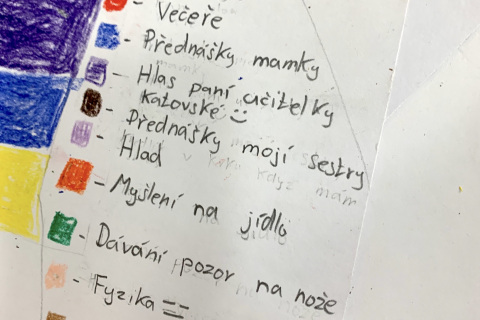 - Večeře
- Přednášky mamky
- Hlas paní učitelky
Kaťovské :)
- Přednášky mojí sestry
- Hlad
- Myšlení na jídlo
- Dávání pozor na nože
- Fyzika